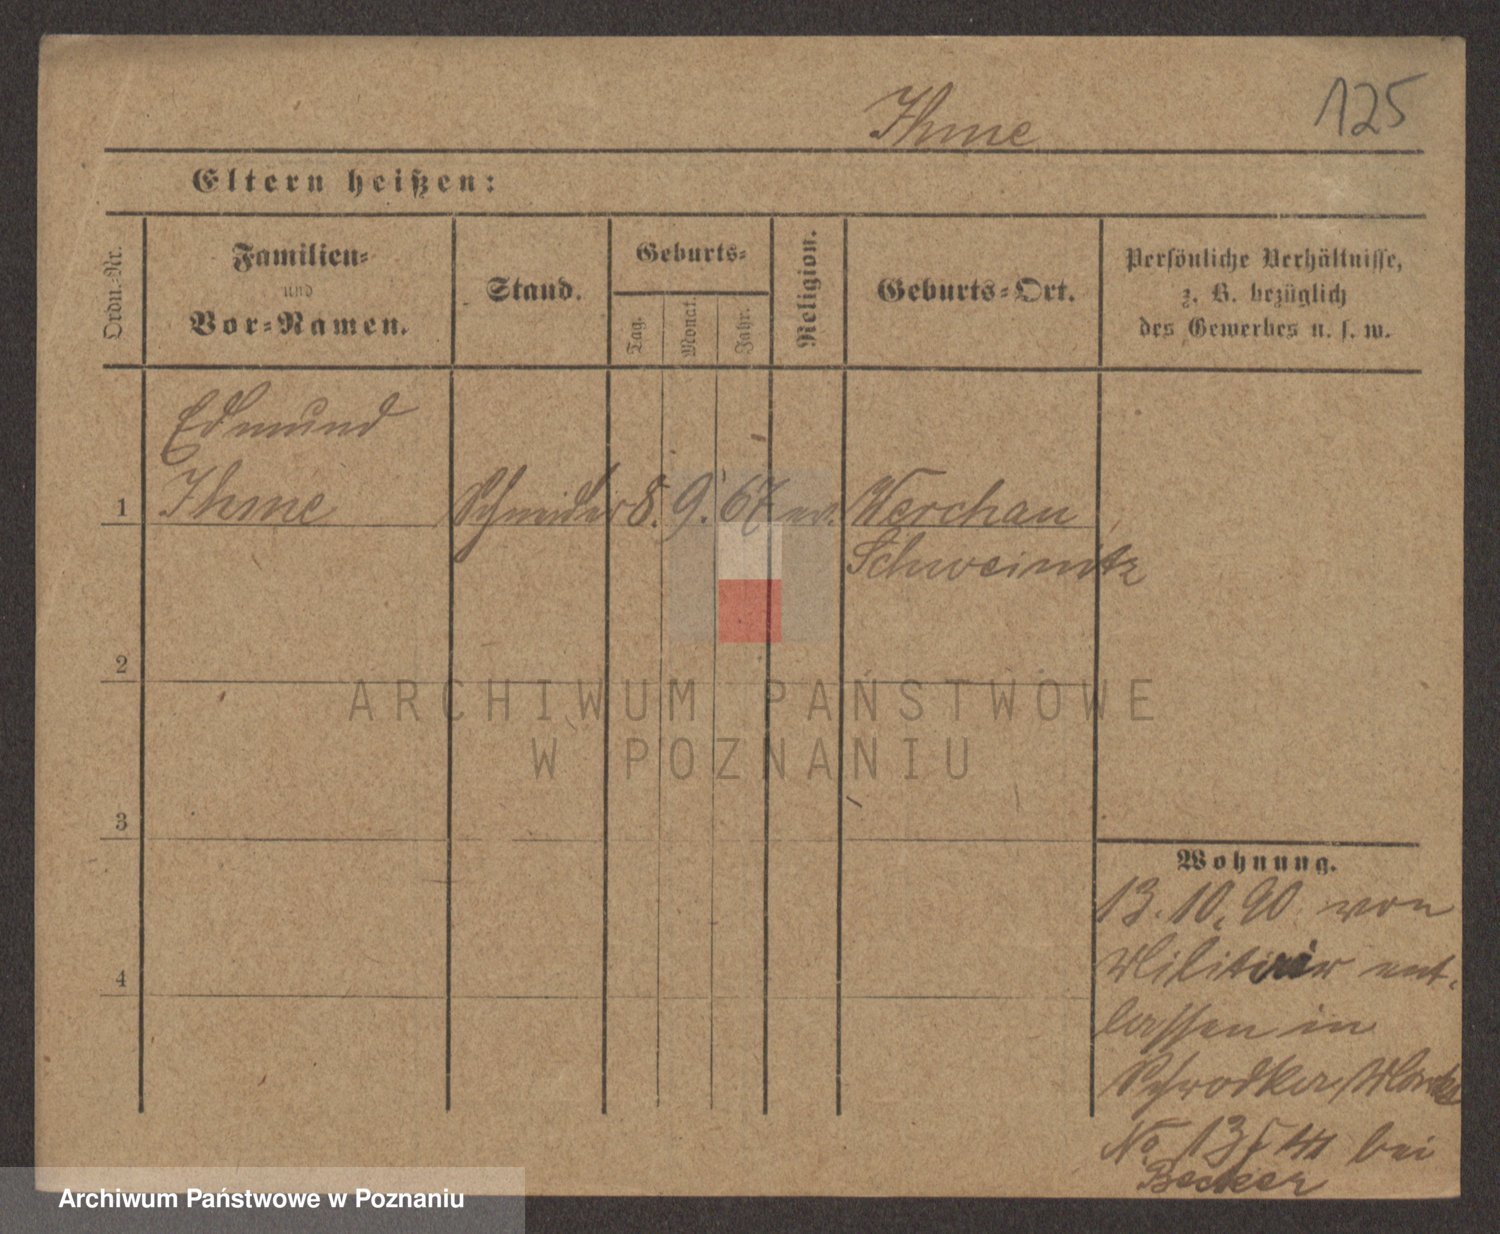 Ihme
125
Eltern heißen:
Ordn.-Nr.
Familien-
und
Vor-Namen.
Stand.
Geburts-
Tag.
Monat.
Jahr.
Religion.
Geburts-Ort.
Persönliche Verhältnisse,
z. B. bezüglich
des Gewerbes u. s. w.
Edmund
1 Ihme Schneider 8. 9. 67 ev. Werchau
Schweinitz
2
3
4
Wohnung.
13.10.90 von
Militär ent-
lassen in
Schrodka
No 13 bei
Becker
ARCHIWUM PAŃSTWOWE
W POZNANIU
Archiwum Państwowe w Poznaniu